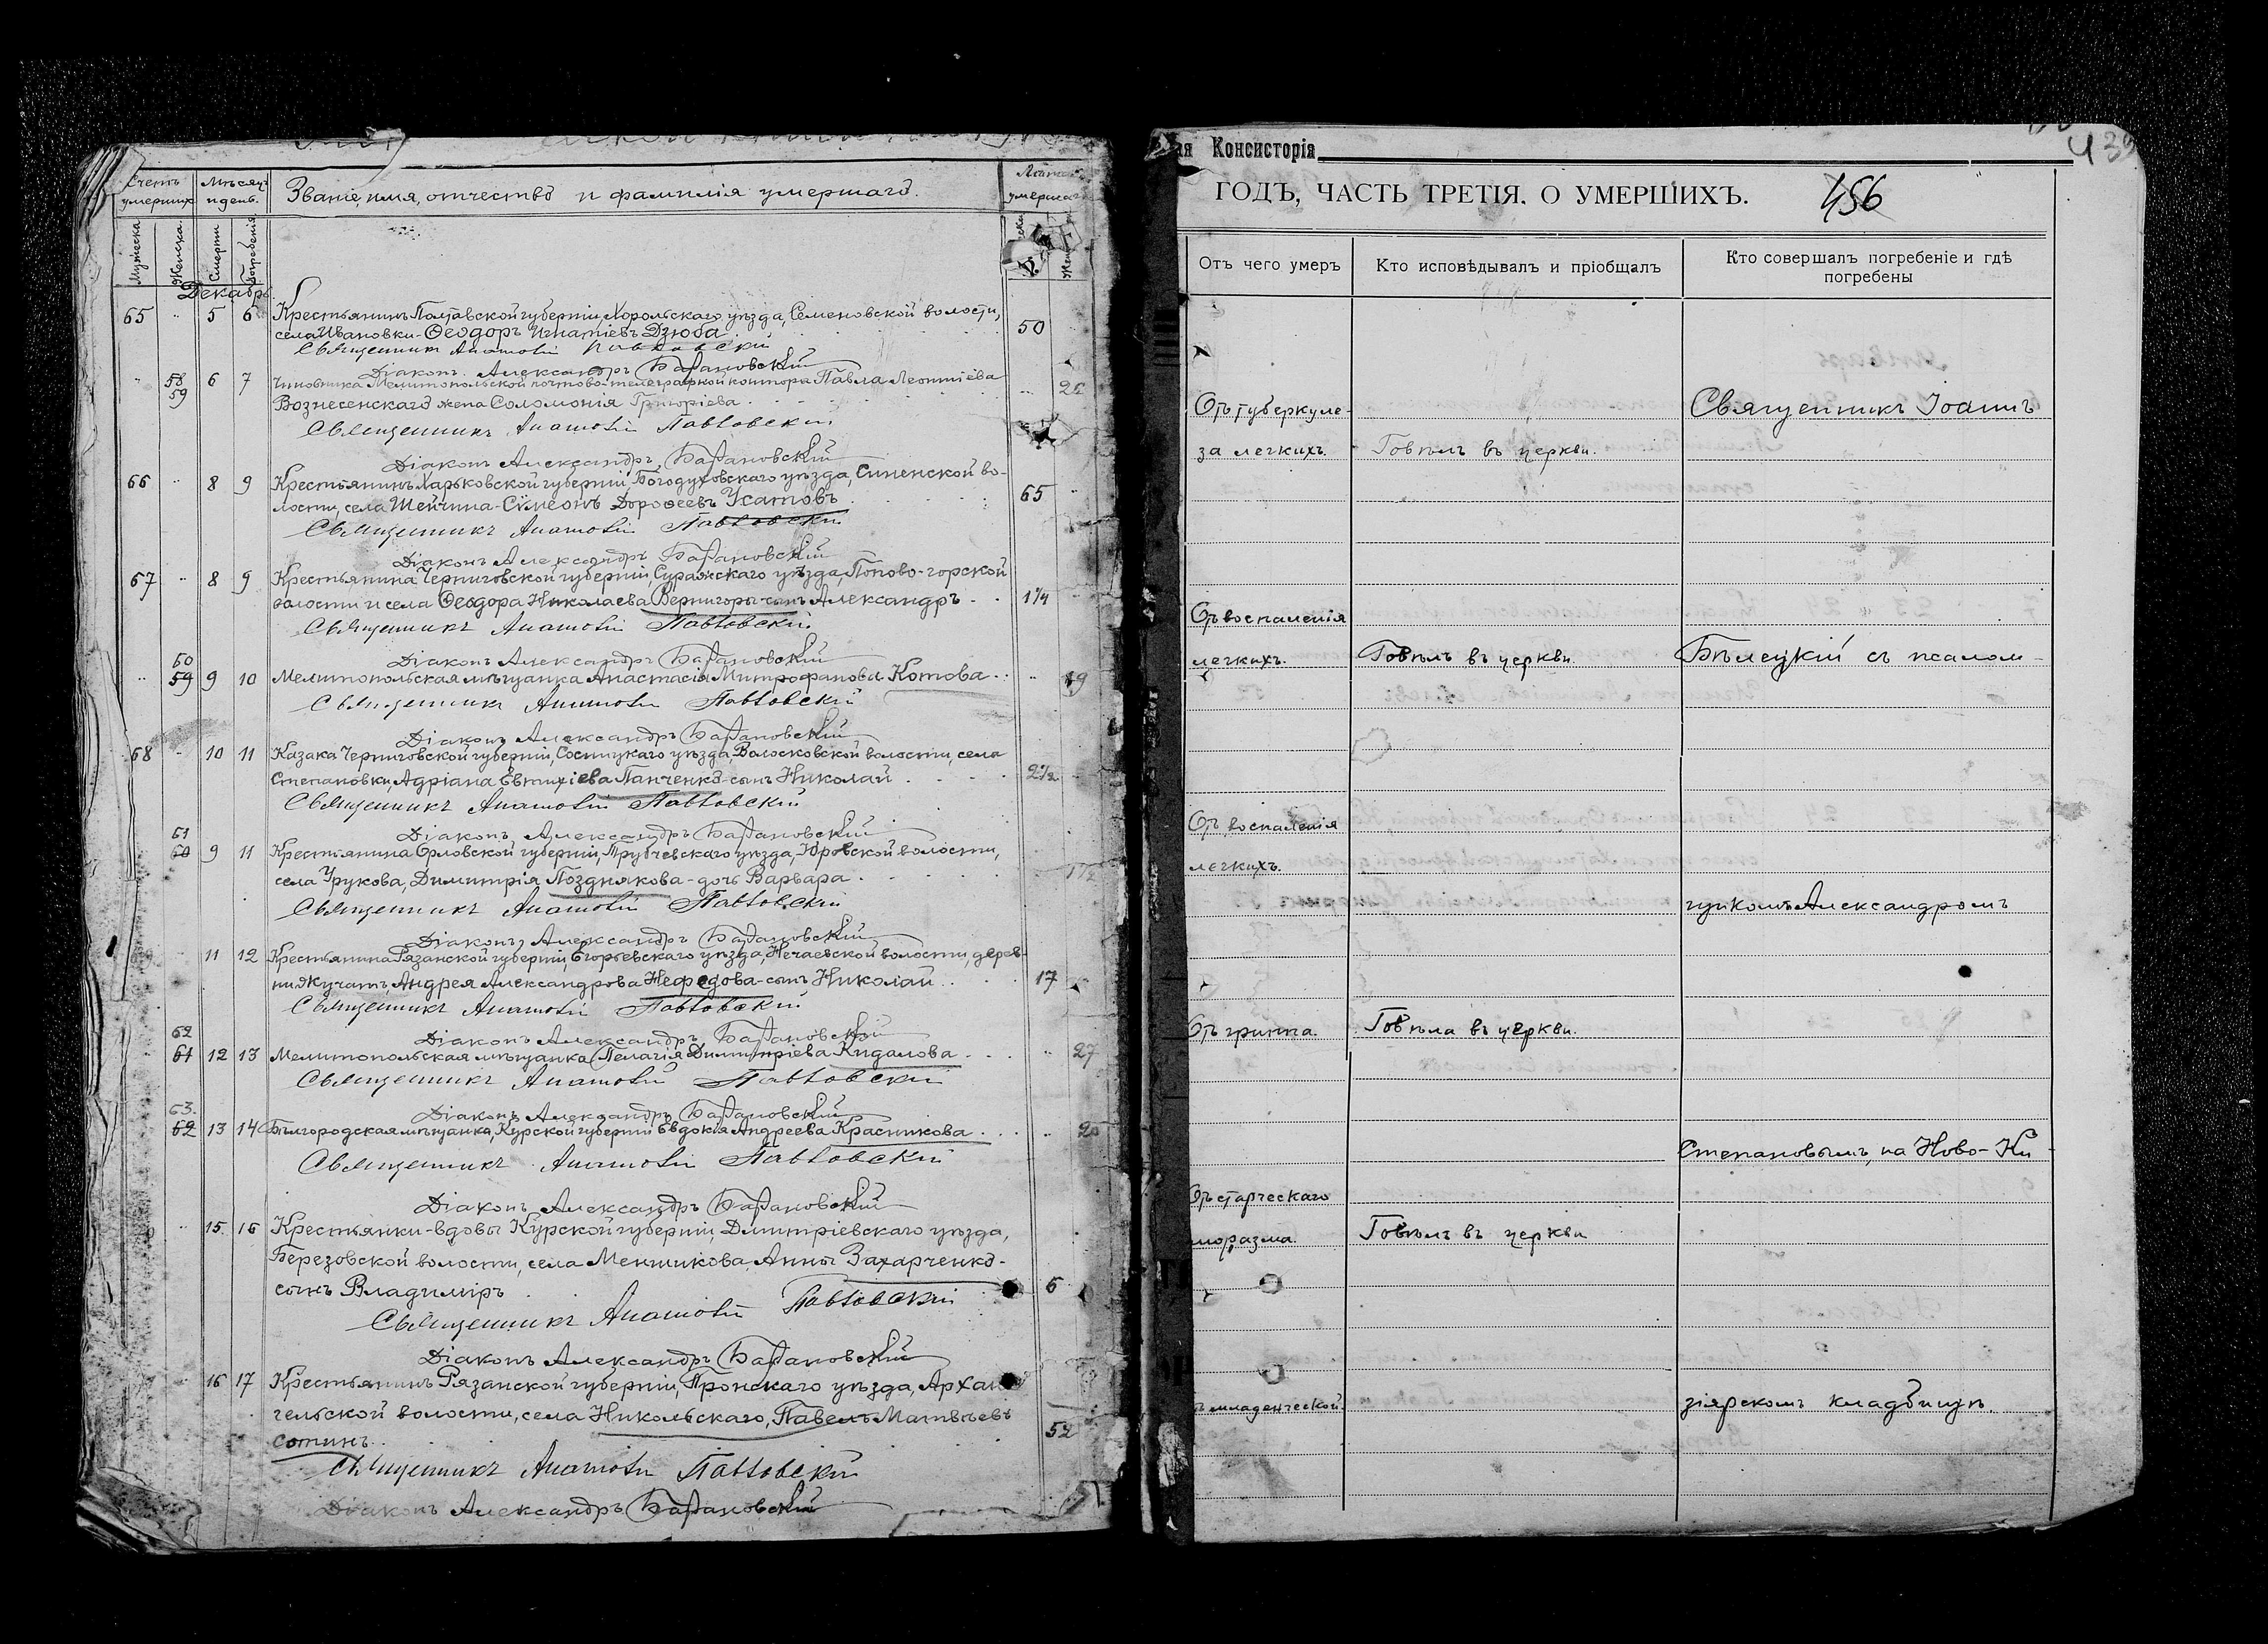 Счетъ умершихъ
Мѣсяцъ и день.
Званіе, имя, отчество и фамилія умершаго.
Лѣта умершаго
Мужеска.
Женска.
Смерти
Погребенія
Декабрь.
65 5 6 Крестьянинъ Полтавской губерніи, Хорольскаго уѣзда, Семеновской волости,
села Ивановки - Ѳеодоръ Игнатіевъ Дзюба 50
Священникъ Анатолій Павловскій
Діаконъ Александръ Барановскій
58
59 6 7 Чиновника Мелитопольской почтово-телеграфной конторы Павла Леонтіева
Вознесенскаго жена Соломонія Григоріева
Священникъ Анатолій Павловскій
Діаконъ Александръ Барановскій
66 8 9 Крестьянинъ Харьковской губерніи, Богодуховскаго уѣзда, Синенской во-
лости, села Шейчина - Сѵмеонъ Дороѳеевъ Усатовъ 65
Священникъ Анатолій Павловскій
Діаконъ Александръ Барановскій
67 8 9 Крестьянина Черниговской губерніи, Суражскаго уѣзда, Попово-горской
волости и села Ѳеодора Николаева Вернигоры сынъ Александръ 1 1/4
Священникъ Анатолій Павловскій
Діаконъ Александръ Барановскій
60
59 9 10 Мелитопольская мѣщанка Анастасія Митрофанова Котова 19
Священникъ Анатолій Павловскій
Діаконъ Александръ Барановскій
68 10 11 Казака Черниговской губерніи, Сосницкаго уѣзда, Волосковской волости, села
Степановки, Адріана Евтихіева Панченко - сынъ Николай 2 1/2
Священникъ Анатолій Павловскій
Діаконъ Александръ Барановскій
61
60 9 11 Крестьянина Орловской губерніи, Трубчевскаго уѣзда, Юровской волости,
села Урукова, Димитрія Позднякова - дочь Варвара 1 1/2
Священникъ Анатолій Павловскій
Діаконъ Александръ Барановскій
11 12 Крестьянина Рязанской губерніи, Егорьевскаго уѣзда, Нечаевской волости, дерев-
ни Жучатъ, Андрея Александрова Нефедова - сынъ Николай 17
Священникъ Анатолій Павловскій
Діаконъ Александръ Барановскій
62
61 12 13 Мелитопольская мѣщанка Пелагія Димитріева Кидалова 27
Священникъ Анатолій Павловскій
Діаконъ Александръ Барановскій
63.
62 13 14 Бѣлгородская мѣщанка, Курской губерніи Евдокія Андреева Красникова
Священникъ Анатолій Павловскій
Діаконъ Александръ Барановскій
15 16 Крестьянки-вдовы Курской губерніи, Дмитріевскаго уѣзда,
Березовской волости, села Меншикова, Анны Захарченко -
сынъ Владиміръ 6
Священникъ Анатолій Павловскій
Діаконъ Александръ Барановскій
16 17 Крестьянинъ Рязанской губерніи, Пронскаго уѣзда, Архан
гельской волости, села Никольскаго, Павелъ Матвѣевъ
Сотинъ 52
Священникъ Анатолій Павловскій
Діаконъ Александръ Барановскій
Консисторія
ГОДЪ, ЧАСТЬ ТРЕТІЯ, О УМЕРШИХЪ. 456
Отъ чего умеръ
Кто исповѣдывалъ и пріобщалъ
Кто совершалъ погребеніе и гдѣ погребены
Отъ туберкуле- Священникъ Іоаннъ
за легкихъ. Говѣлъ въ церкви.
Отъ воспаленія
легкихъ. Говѣлъ въ церкви. Бѣлецкій съ псалом-
Отъ воспаленія
легкихъ.
щикомъ Александромъ
Отъ гриппа. Говѣла въ церкви.
Степановымъ, на Ново-Ки
Отъ старческаго
моразма. Говѣлъ въ церкви
младенческой. зіярскомъ кладбищѣ.